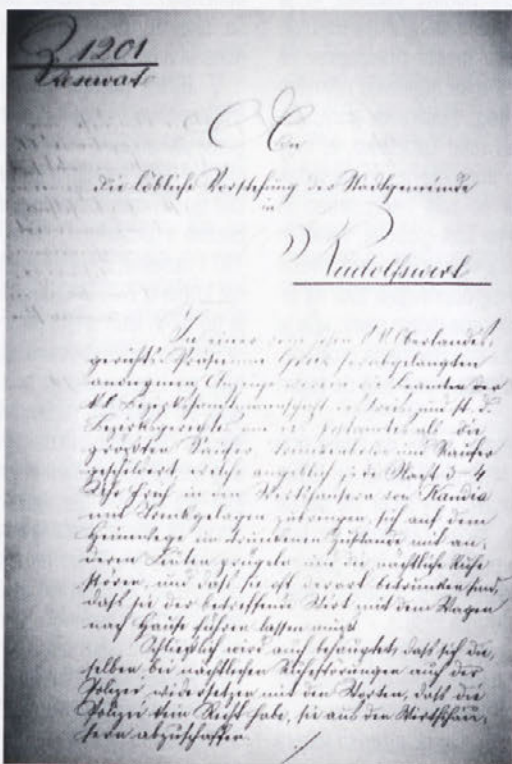 Z 1201
An
die löbliche Vorstehung der Stadtgemeinde
in
Rudolfswert
In einer vom hohen k.k. Oberlandes-
gerichts-Präsidium Graz herabgelangten
anonymen Anzeige werden die Beamten der
k.k. Bezirkshauptmannschaft, des Kreis- und st. d.
Bezirksgerichtes und des Postamtes als die
größten Säufer, Trunkenbolde und Raufer
geschildert, welche angeblich jede Nacht 3-4
Uhr früh in den Wirtshäusern von Kandia
mit Trinkgelagen zubringen, sich auf dem
Heimwege im trunkenen Zustande mit an-
deren Leuten prügeln und die nächtliche Ruhe
stören, und daß sie oft derart betrunken sind,
daß sie der betreffende Wirt mit dem Wagen
nach Hause führen lassen muß.
Schließlich wird auch behauptet, daß sich die-
selben bei nächtlichen Ruhestörungen auf der
Polizei widersetzen mit den Worten, daß die
Polizei kein Recht habe, sie aus den Wirtshäu-
sern abzuschaffen.